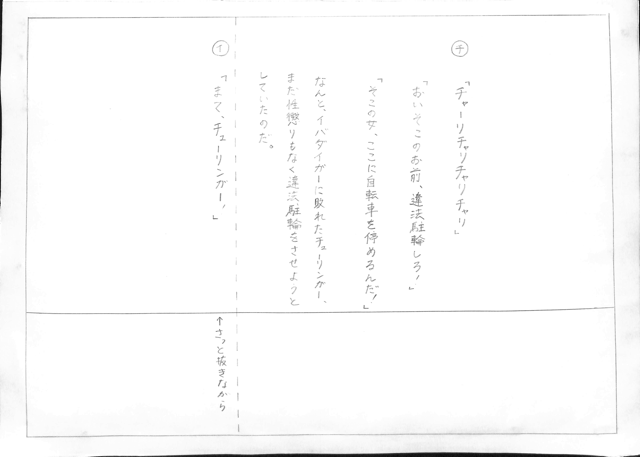 チ
「チャーリチャリチャリチャリ」
「おいそこのお前、違法駐輪しろ！」
「そこの女、ここに自転車を停めるんだ！」
なんと、イバダイガーに敗れたチューリンガー、
まだ性懲りもなく違法駐輪をさせようと
していたのだ。
イ
「まて、チューリンガー！」
↑さっと抜きながら